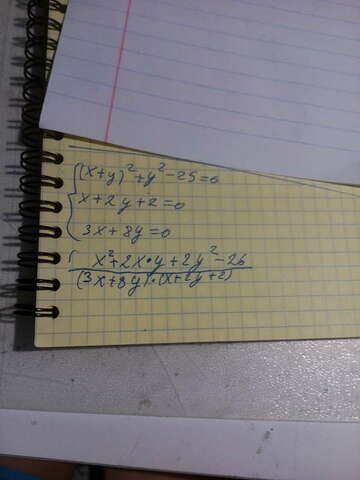 (x+y)²+y²-25=0
x+2y+2=0
3x+8y=0
x²+2x•y+2y²-26
(3x+8y)•(x+2y+2)